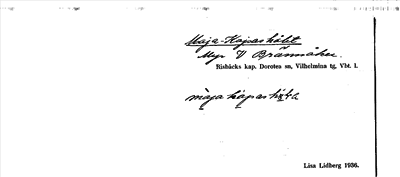 Maja-Kajsashålet
Myr V Brännåker.
Risbäcks kap. Dorotea sn, Vilhelmina tg, Vbt. l.
Lisa Lidberg 1936.